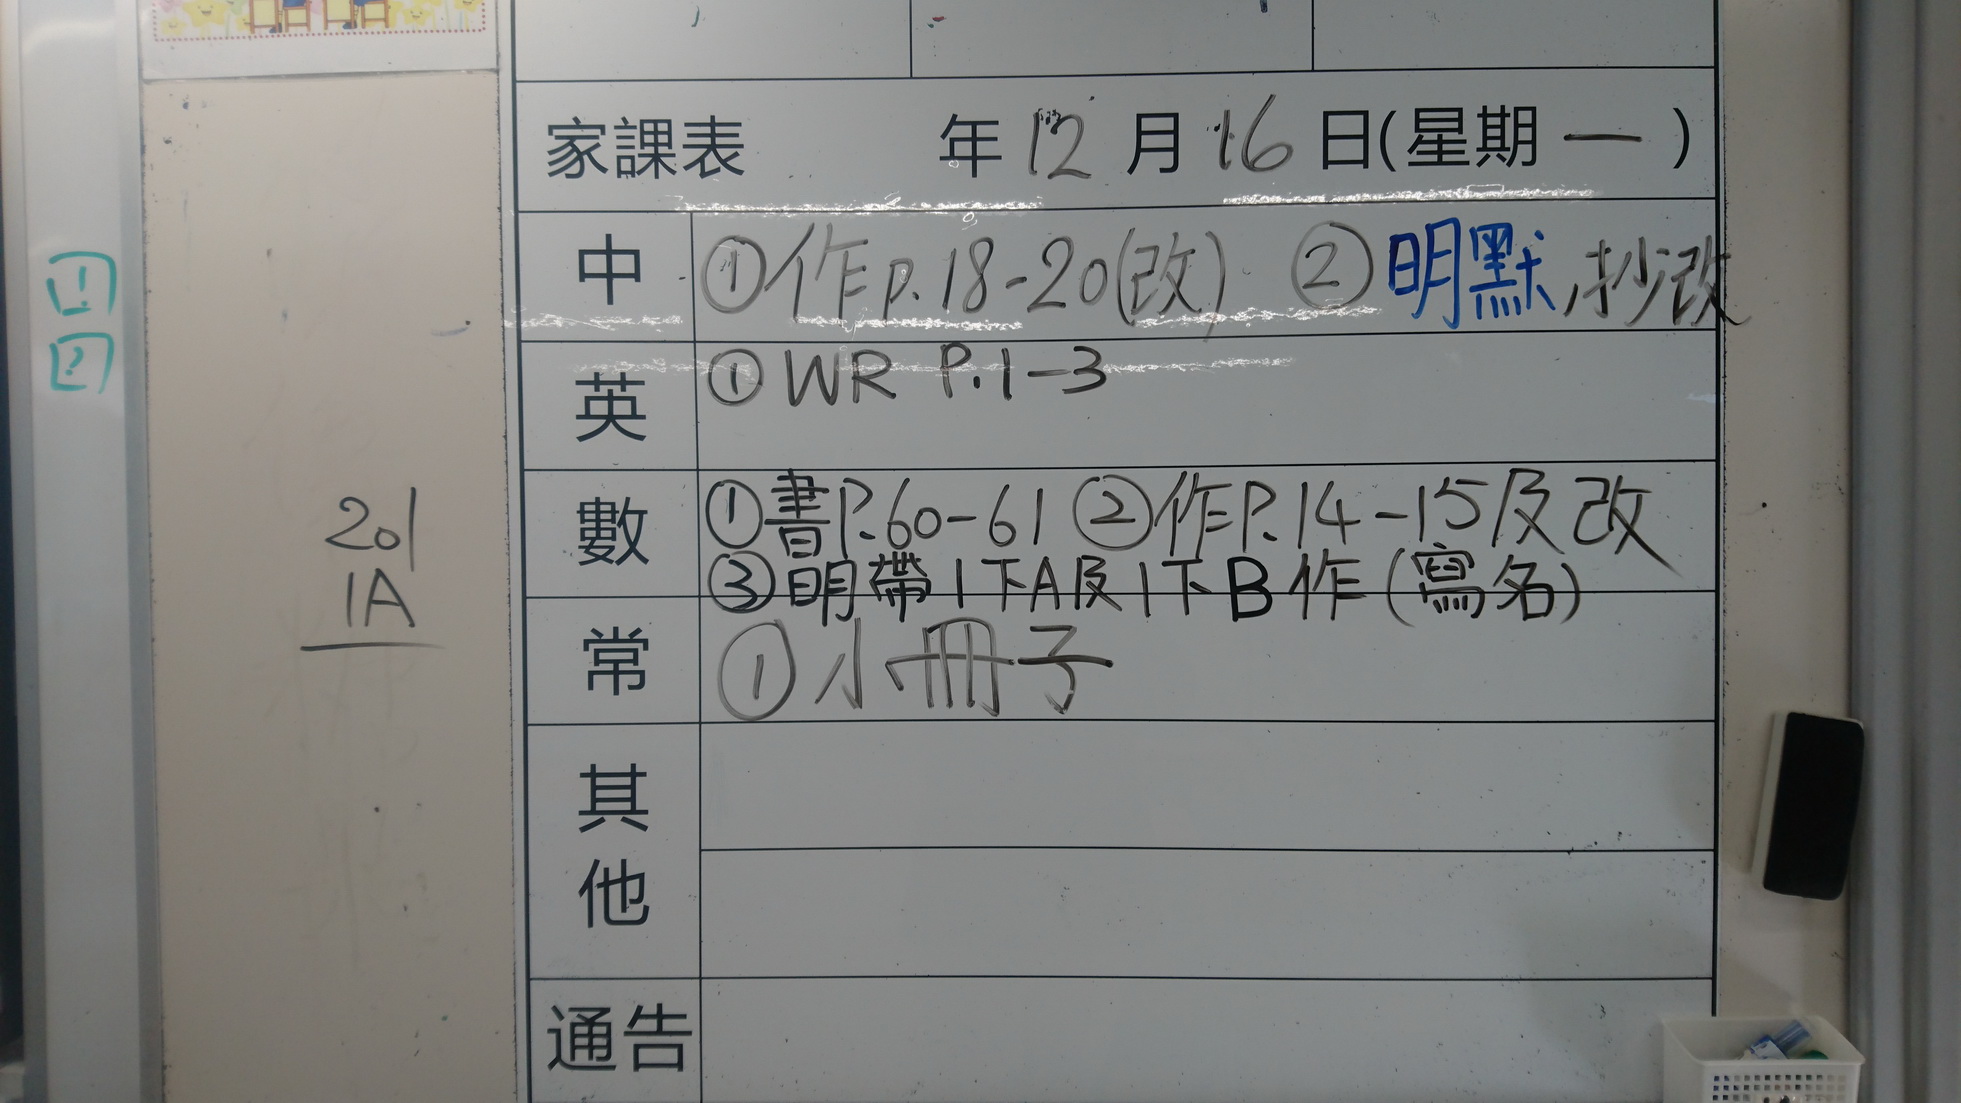 家課表 年 12 月 16 日(星期 一 )
中 ①作p.18-20(改) ②明默,抄改
英 ① WR P.1-3
數 ①書P.60-61 ②作P.14-15及改
③明帶1下A及1下B作(寫名)
常 ①小冊子
其他
通告
1
2
201
1A